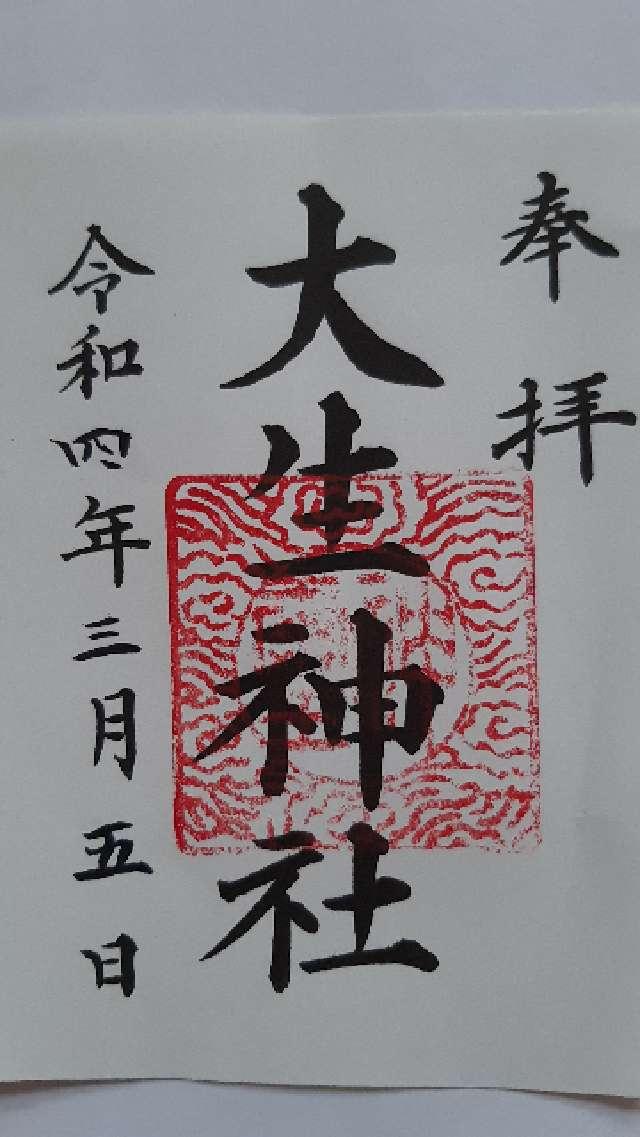 奉拝
大生神社
令和四年三月五日